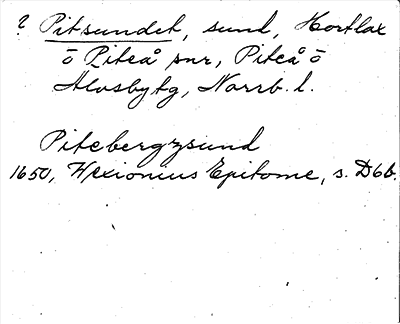 ? Pitsundet, sund, Hortlax
o Piteå snr, Piteå o
Älvsbytg, Norrb. l.
Pitebergzsund
1650, Hexionius Epitome, s. D6b.